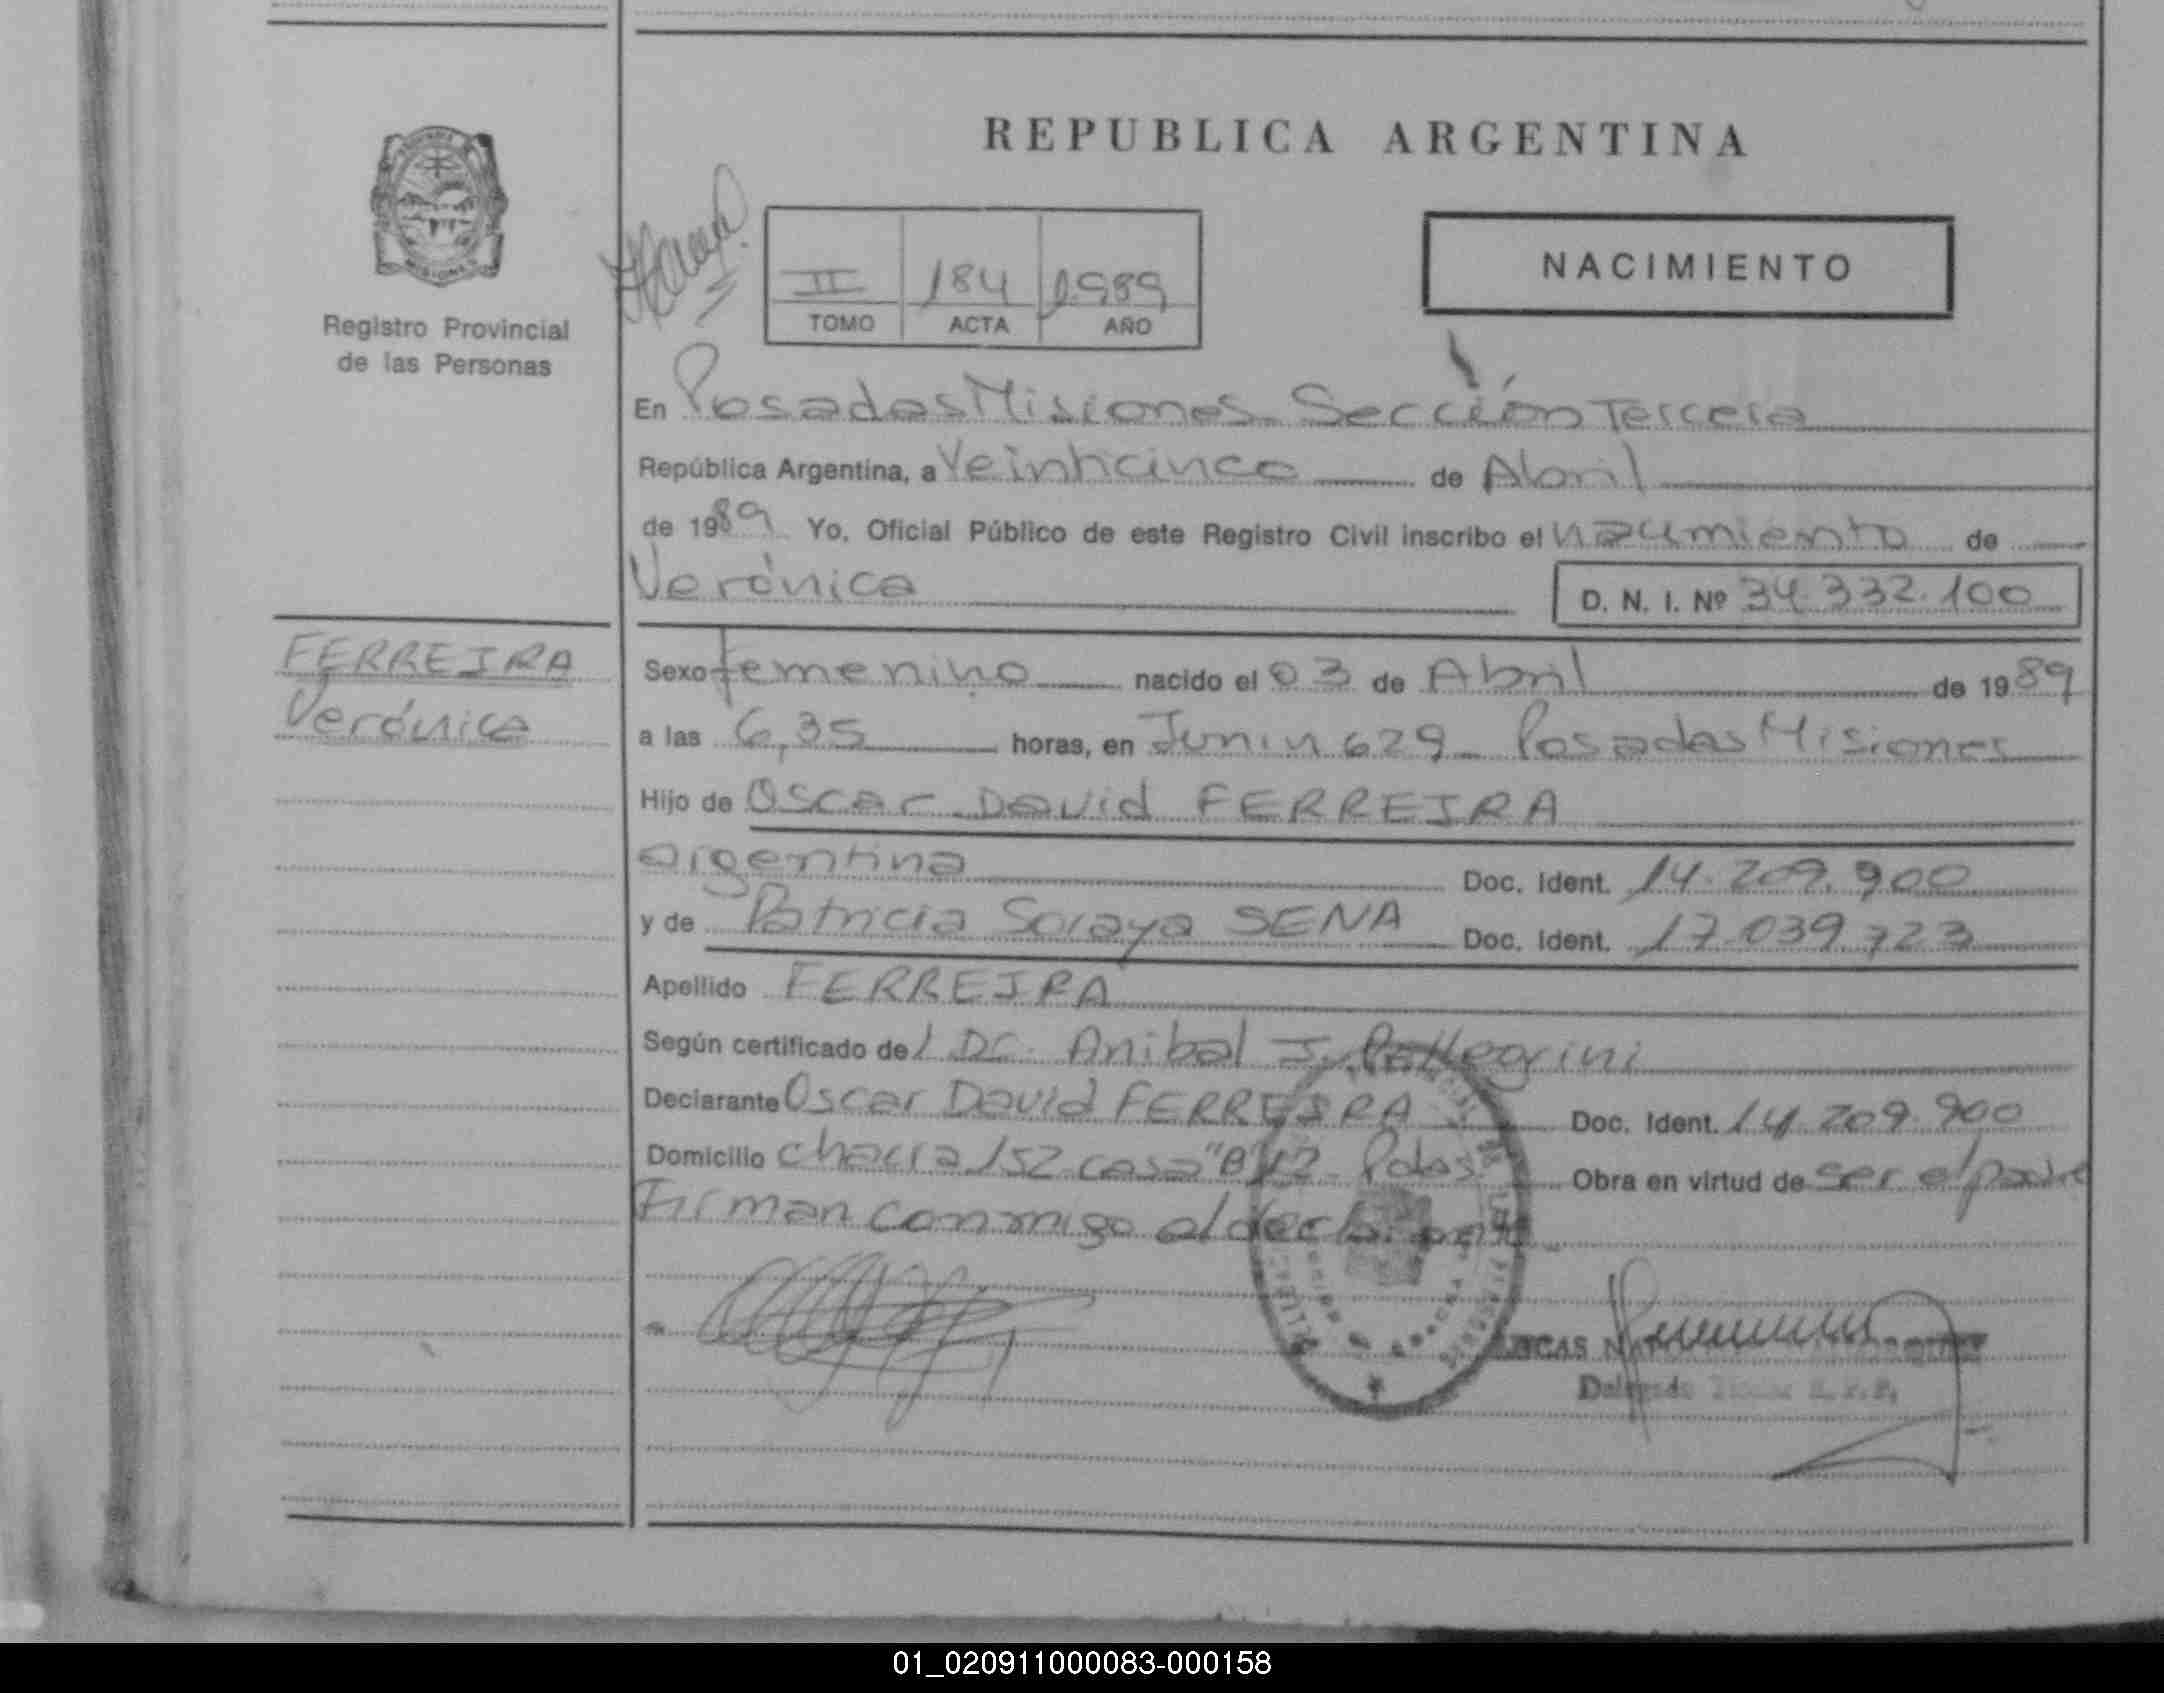 REPUBLICA ARGENTINA
MISIONES
Registro Provincial
de las Personas
II 184 1989
TOMO ACTA AÑO
NACIMIENTO
En Posadas Misiones Sección Tercera
República Argentina, a Veinticinco de Abril
de 1989 Yo, Oficial Público de este Registro Civil inscribo el nacimiento de
Verónica D. N. I. Nº 34.332.100
FERREIRA
Verónica
Sexo femenino nacido el 03 de Abril de 1989
a las 6,35 horas, en Junin 629 Posadas Misiones
Hijo de Oscar David FERREIRA
argentina Doc. Ident. 14.209.900
y de Patricia Soraya SENA Doc. Ident. 17.039.723
Apellido FERREIRA
Según certificado del Dr. Anibal J. Pellegrini
Declarante Oscar David FERREIRA Doc. Ident. 14.209.900
Domicilio chacra 152 casa "B" Pdas Obra en virtud de ser el padre
Firman conmigo el declarante
Delegado
01_020911000083-000158